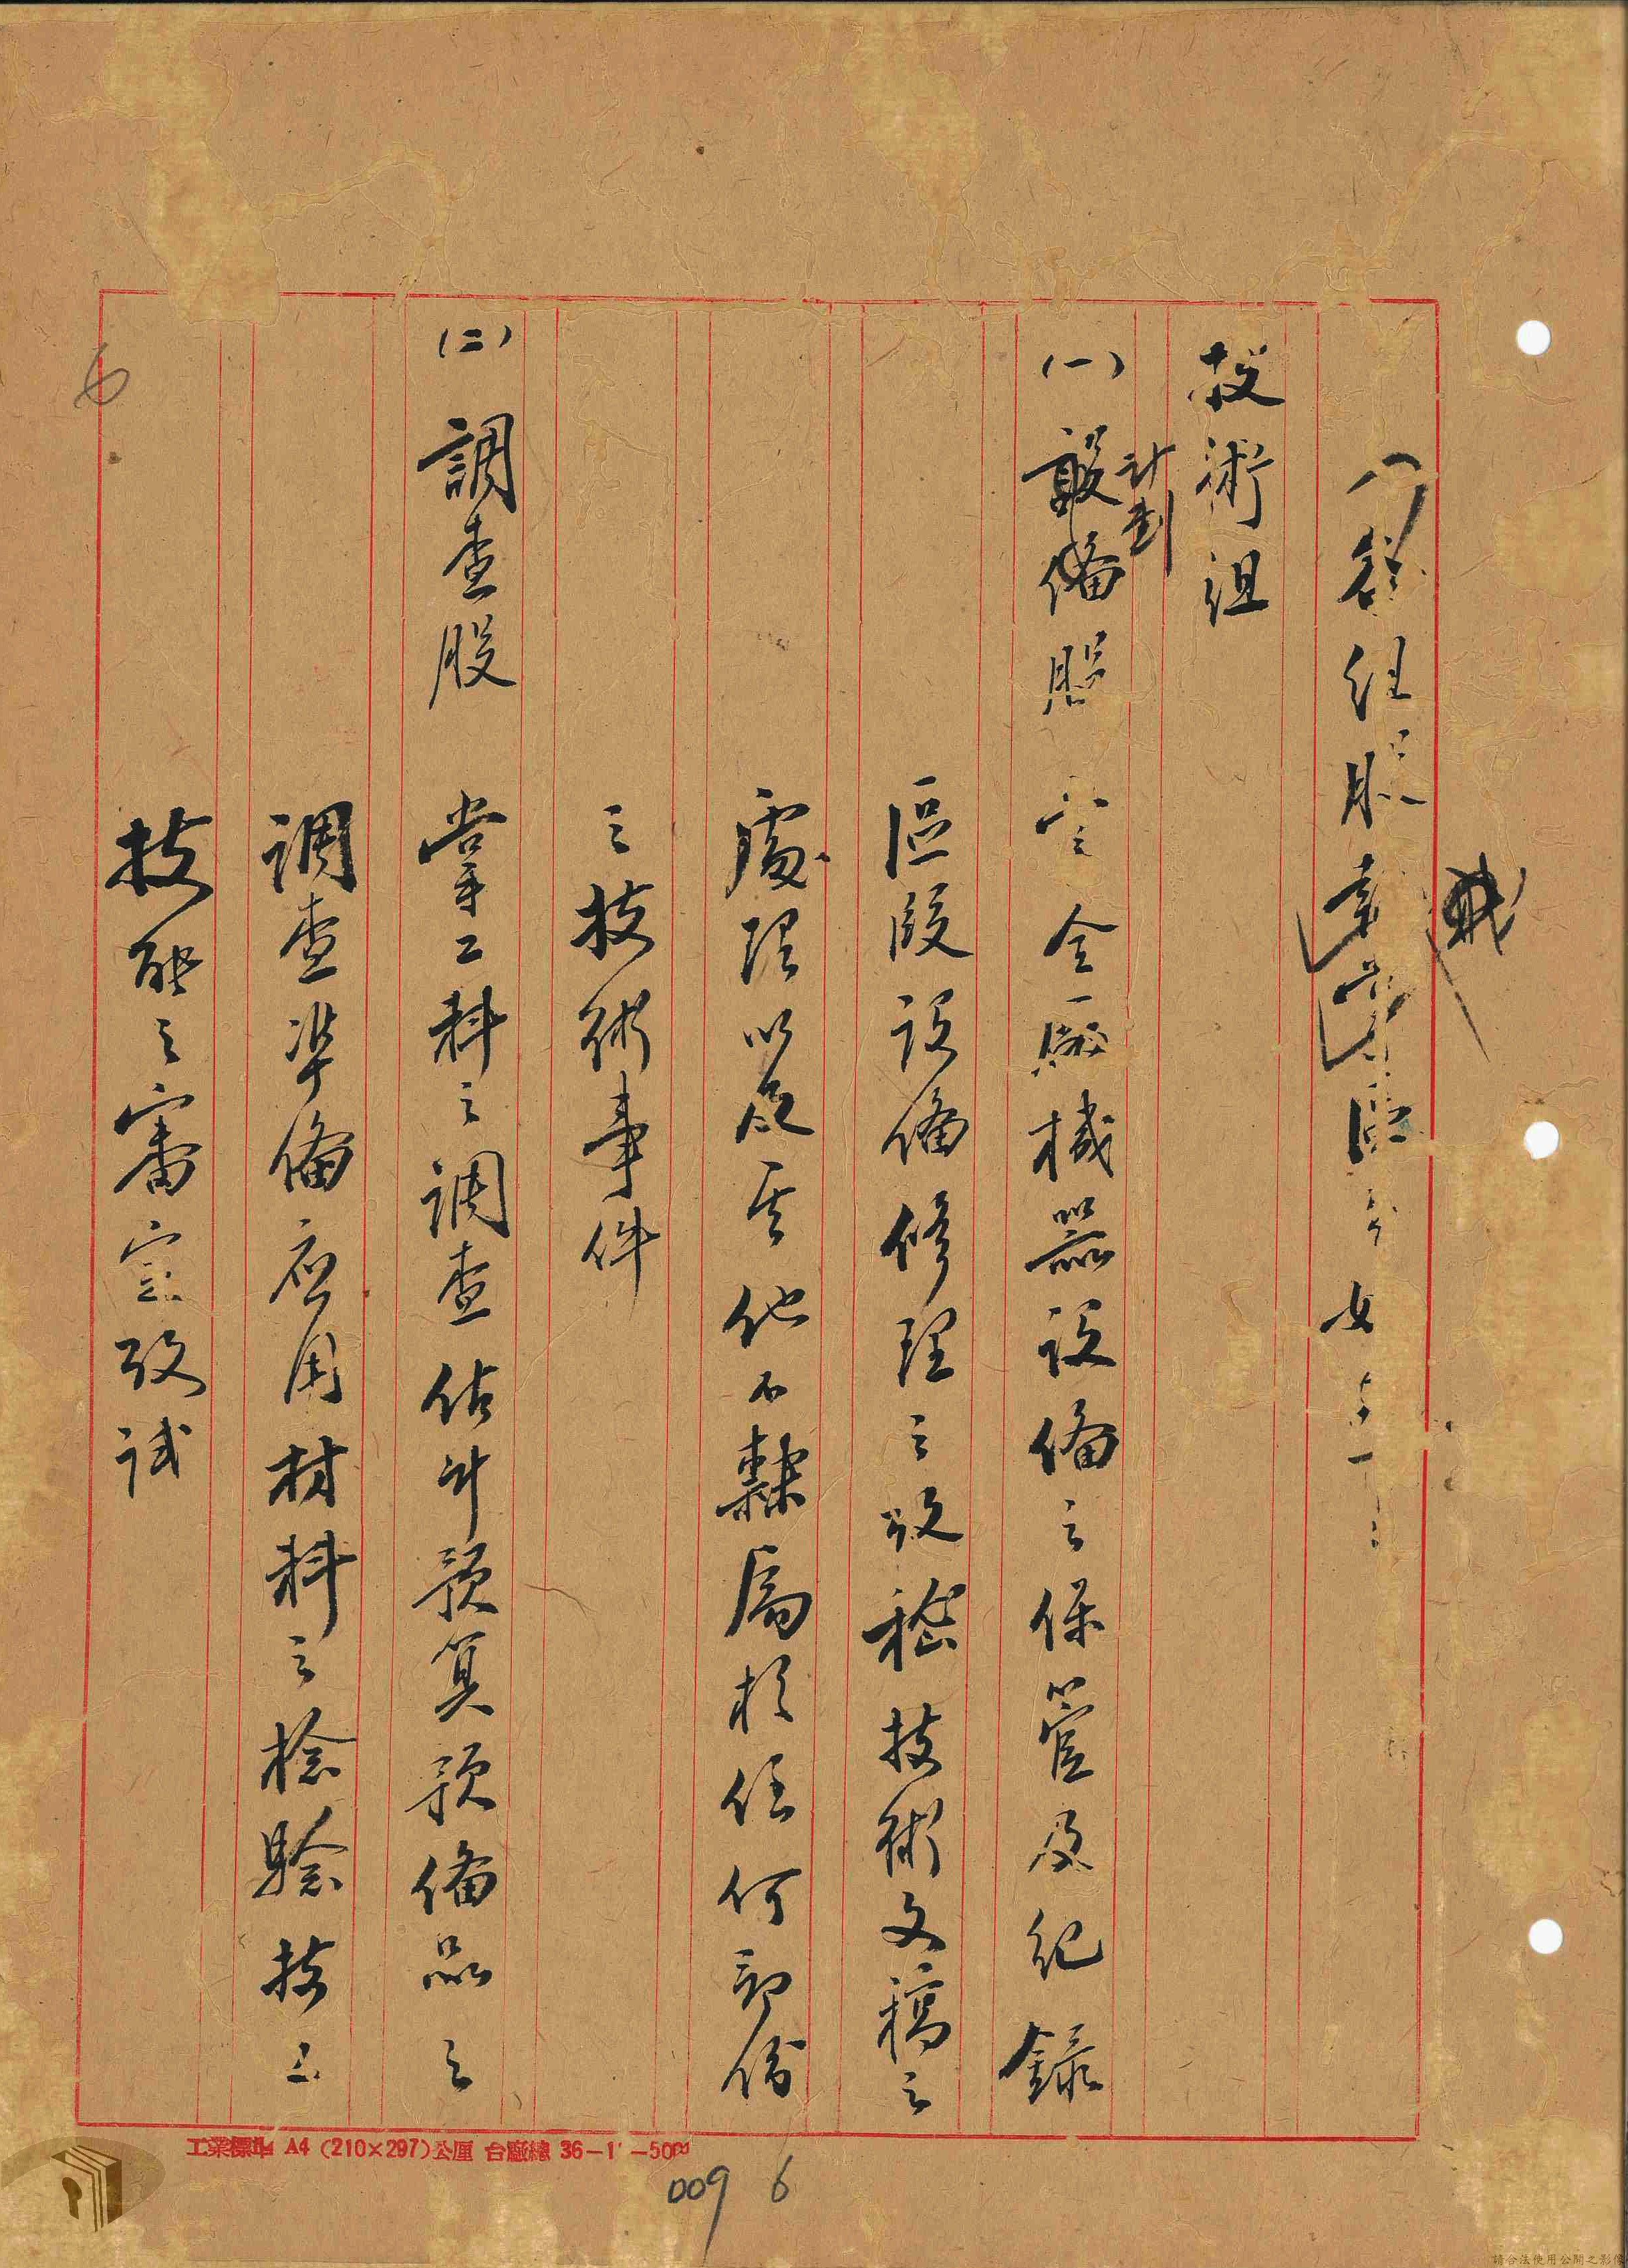 技術組
計劃
(一) 設備股 掌全廠機器设備之保管及纪錄
區段设備修理之改稔技術文稿之
處理以及其他不隸屬於任何部份
之技術事件
(二) 調查股 掌工料之調查估计预算预備品之
调查準備应用材料之檢驗技工
技能之審定攷試
6
工業標準 A4 (210×297)公厘 台廠總 36-1
009 6
請合法使用公開之影像